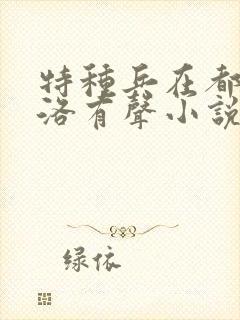 特種兵在都
洛有聲小說
绿依